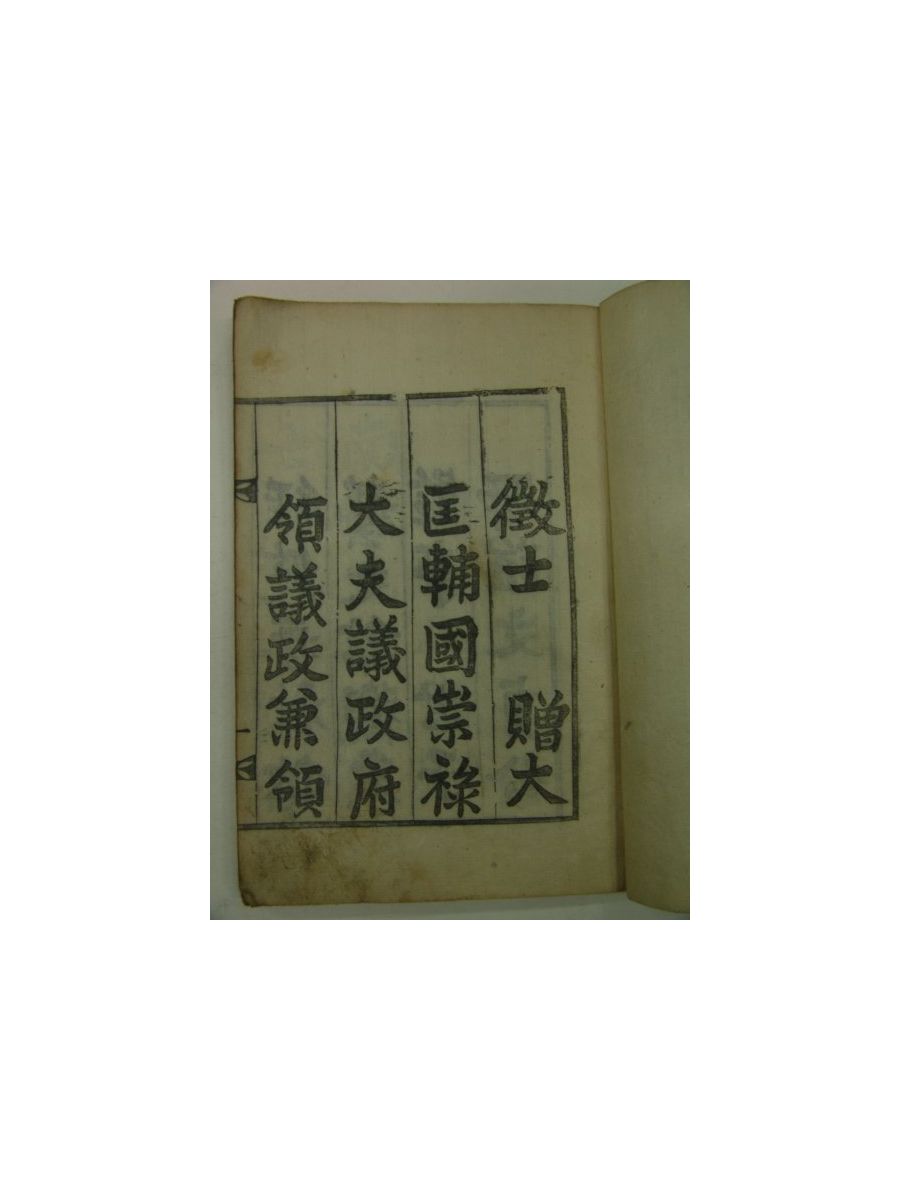 徵士 贈大
匡輔國崇祿
大夫議政府
領議政兼領
一